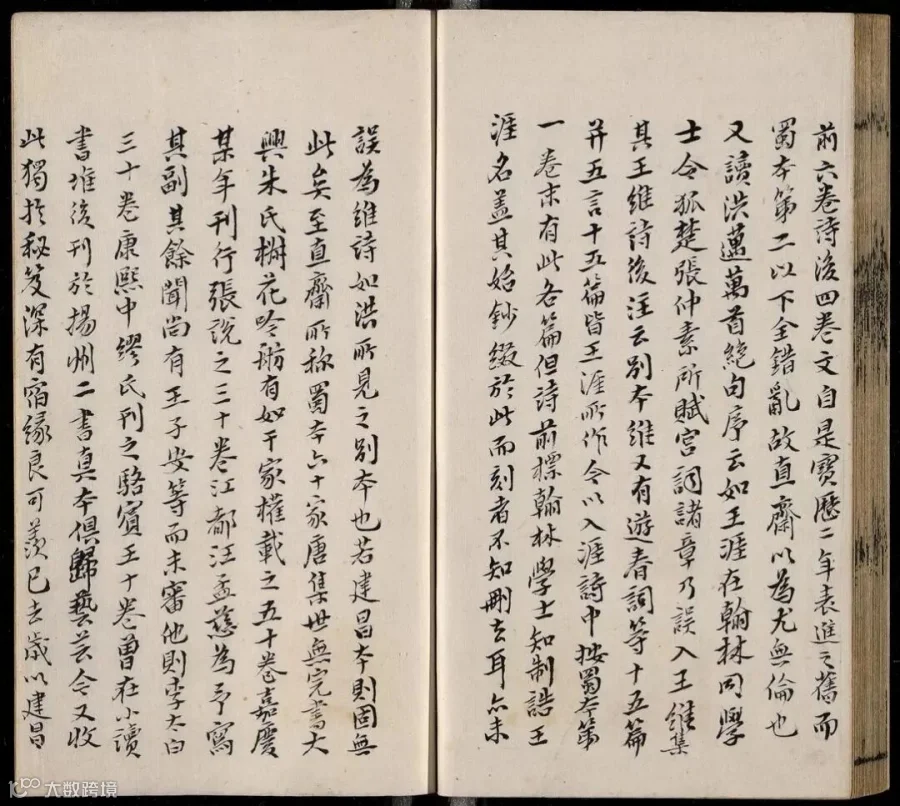 前六卷詩後四卷文自是寶歷二年表進之舊而
蜀本第二以下全錯亂故直齋以為尤無倫也
又讀洪邁萬首絕句序云如王涯在翰林同學
士令狐楚張仲素所賦宮詞諸章乃誤入王維集
其王維詩後注云別本維又有遊春詞等十五篇
并五言十五篇皆王涯所作今以入涯詩中按蜀本第
一卷末有此各篇但詩前標翰林學士知制誥王
涯名蓋其始鈔綴於此而刻者不知刪去耳亦未
誤為維詩如洪所見之別本也若建昌本則固無
此矣至直齋所称蜀本六十家唐集世無完書大
興朱氏樹花吟舫有如干家權載之五十卷嘉慶
某年刊行張說之三十卷江都汪孟慈為予寫
其副其餘聞尚有王子安等而未審他則李太白
三十卷康熙中繆氏刊之駱賓王十卷曾在小讀
書堆後刊於揚州二書真本俱歸藝芸今又收
此獨於秘笈深有宿緣良可羨已去歲以建昌
大数跨境